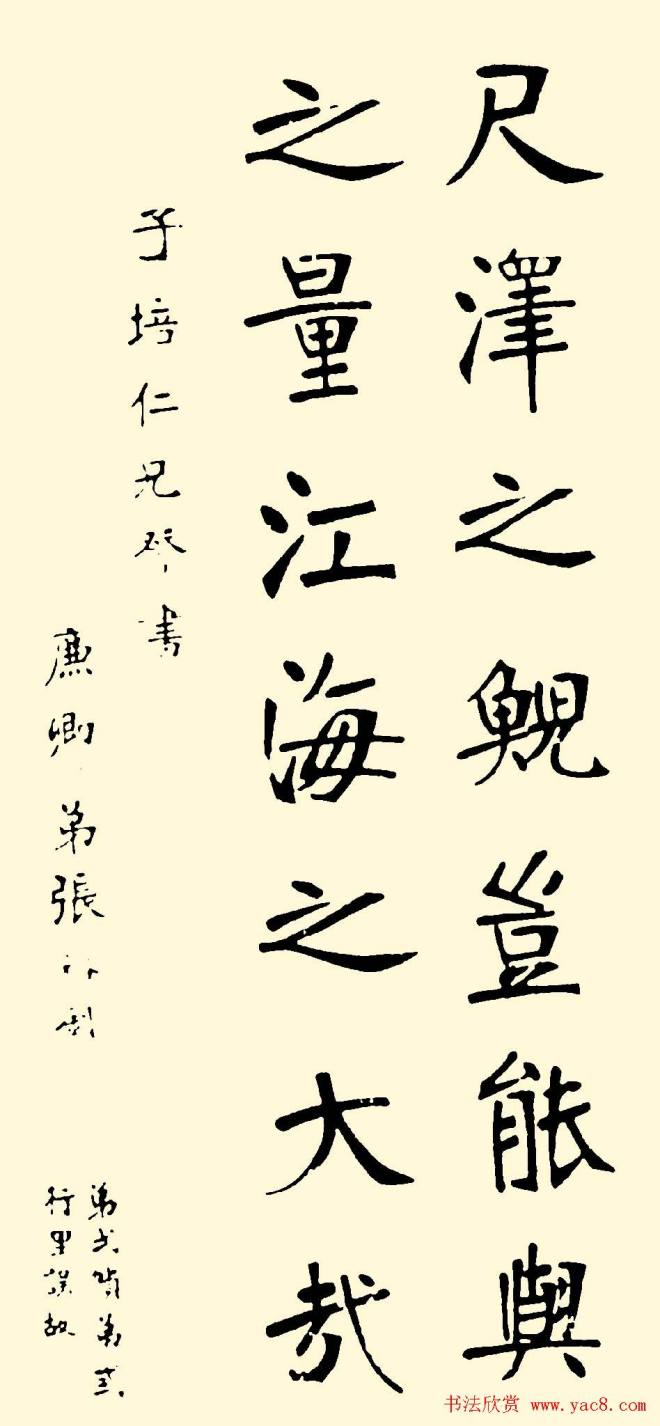 尺澤之鯢豈能與
之量江海之大哉
子培仁兄 書
廉卿弟張裕釗
弟 第
行 誤
书法欣赏 www.yac8.com